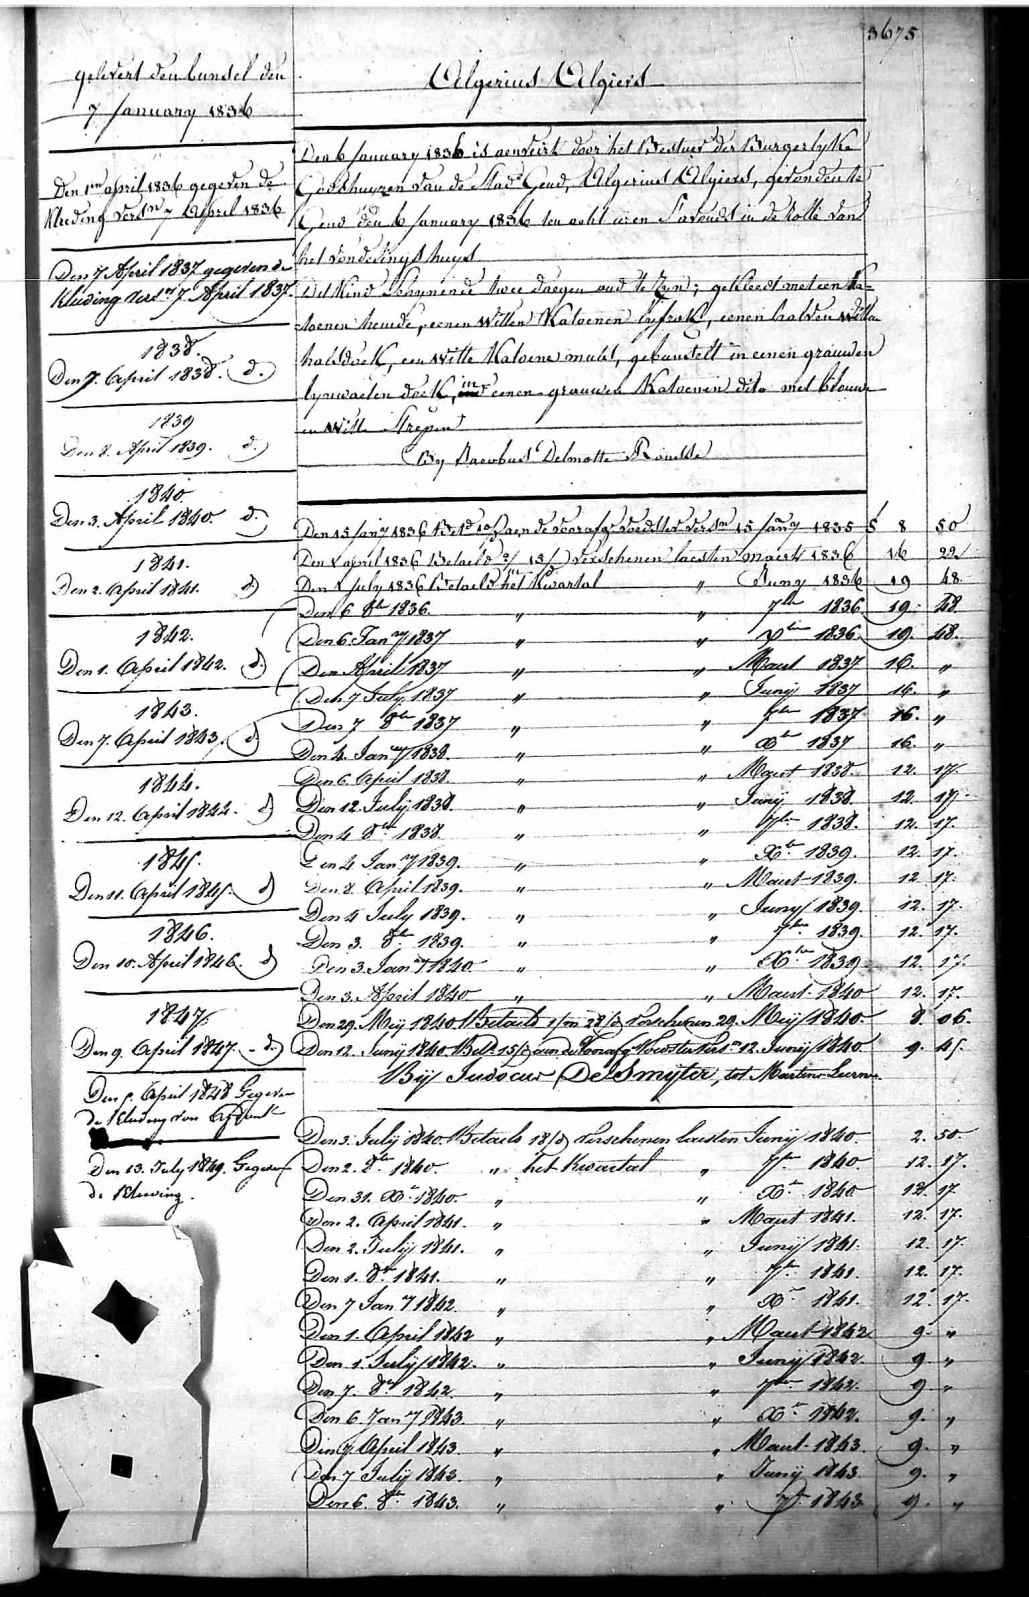 3675
gelevert den bunsel den
7 January 1836
Den 1en april 1836 gegeven de
kleeding 7 April 1836
Den 7 April 1837 gegeven de
kleeding 7 April 1837.
1838.
Den 7. April 1838. d.
1839
Den 8. April 1839. d.
1840.
Den 3. April 1840. d.
1841.
Den 2. April 1841. d
1842.
Den 1. April 1842. d.
1843.
Den 7. April 1843. d
1844.
Den 12. April 1844. d
1845.
Den 11. April 1845. d
1846.
Den 10. April 1846. d
1847.
Den 9. April 1847. - d.
Den 5. April 1848 Gegeven
de Kleeding van
Den 13. July 1849. Gegeven
de Kleeding.
Algerius Algiers
Den 6 January 1836 is aenveirt door het Bestuer der Burgerlyke
Godshuyzen van de Stad Gend, Algerius Algiers, gevonden te
Gend den 6 January 1836 ten acht uren s'avonds in de rolle van
het vondelings huys
Dit Kind schynende twee daegen oud te zyn; gekleed met een ka-
toenen hemde, eenen witten Katoenen lyfrok, eenen halven witten
halsdoek, een witte Katoene muts, gebunselt in eenen grauwen
lynwaeten doek, in eenen grauwen Katoenen dito met blauwe
en witte strepen
By Jacobus Delmotte Rouelse
Den 15 Jany 1836 voedster 15 Jany 1835 5 8 50
Den 8 april 1836 Betaeld verschenen laesten maert 1836 16 22
Den 8 july 1836 Betaeld het Kwartal " Juny 1836 19 48
Den 6 8be 1836. " " 7ber 1836 19. 48.
Den 6 Jany 1837 " " Xber 1836. 19. 48.
Den April 1837 " " Maert 1837 16. "
Den 7 July 1837 " " Junij 1837 16. "
Den 7 8be 1837 " " 7ber 1837 16. "
Den 4. Jany 1838. " " Xbr 1837 16. "
Den 6. April 1838. " " Maert 1838. 12. 17.
Den 12. July 1838. " " Junij 1838. 12. 17.
Den 4 8br 1838. " " 7br 1838. 12. 17.
Den 4 Jany 1839. " " Xbr 1839. 12. 17.
Den 8. April 1839. " " Maert 1839. 12. 17.
Den 4 July 1839. " " Juny 1839. 12. 17.
Den 3. 8br 1839. " " 7br 1839. 12. 17.
Den 3. Jany 1840 " " Xber 1839 12. 17.
Den 3. April 1840 " " Maert 1840 12. 17.
Den 29. Meij 1840 Betaeld verschenen 29. Meij 1840. 8. 06.
Den 12. Junij 1840 Bet. 15/ aen de Voorafg Voedster 12. Junij 1840. 9. 45.
Bij Judocus De Smijter, tot Martens Leerne.
Den 3. Julij 1840. Betaeld 18/ verschenen laesten Junij 1840. 2. 50.
Den 2. 8br 1840. " het Kwartal " 7br 1840. 12. 17.
Den 31. Xbr 1840. " " Xbr 1840 12. 17
Den 2. April 1841. " " Maert 1841. 12. 17.
Den 2. Julij 1841. " " Junij 1841. 12. 17.
Den 1. 8br 1841. " " 7br 1841. 12. 17.
Den 7 Jany 1842. " " Xbr 1841. 12. 17.
Den 1. April 1842 " " Maert 1842 9. "
Den 1. Julij 1842. " " Junij 1842. 9. "
Den 7. 8br 1842. " " 7br 1842. 9 "
Den 6. Jany 1843. " " Xbr 1842. 9. "
Den 7 April 1843. " " Maert 1843. 9. "
Den 7 Julij 1843. " " Junij 1843 9. "
Den 6. 8br 1843. " " 7br 1843 9. "